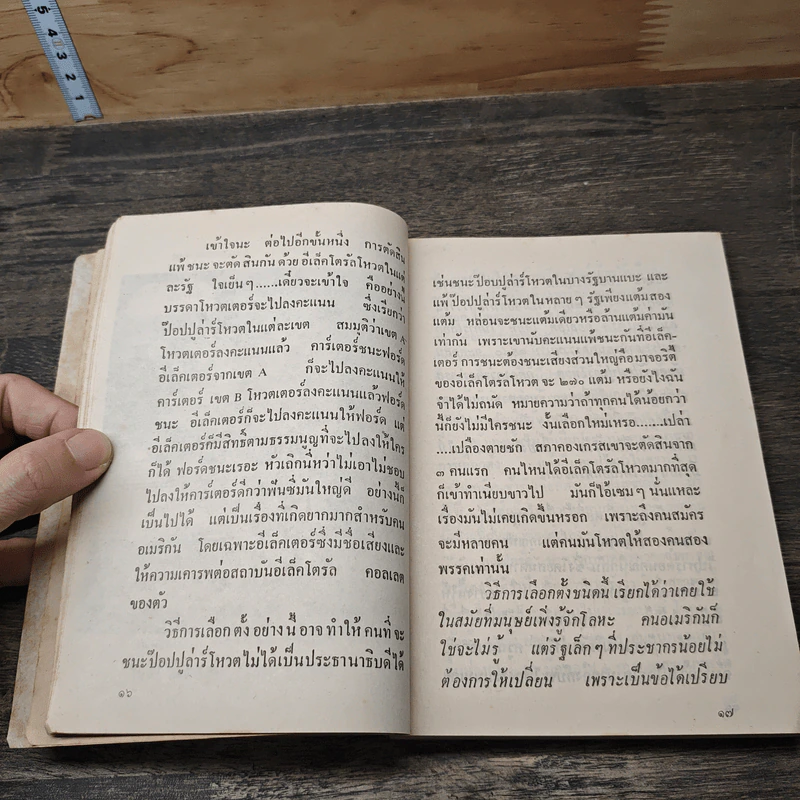 5 4 3 2 1
เข้าใจนะ ต่อไปอีกขั้นหนึ่ง การตัดสิน
แพ้ชนะจะตัดสินกันด้วย อีเล็คโตรัลโหวตในแต่
ละรัฐ ใจเย็นๆ......เดี๋ยวจะเข้าใจ คืออย่างนี้
บรรดาโหวตเตอร์จะไปลงคะแนน ซึ่งเรียกว่า
ป๊อปปูล่าร์โหวตในแต่ละเขต สมมุติว่าเขต A
โหวตเตอร์ลงคะแนนแล้ว คาร์เตอร์ชนะฟอร์ด
อีเล็คเตอร์จากเขต A ก็จะไปลงคะแนนให้
คาร์เตอร์ เขต B โหวตเตอร์ลงคะแนนแล้วฟอร์ด
ชนะ อีเล็คเตอร์ก็จะไปลงคะแนนให้ฟอร์ด แต่
อีเล็คเตอร์ก็มีสิทธิ์ตามธรรมนูญที่จะไปลงให้ใคร
ก็ได้ ฟอร์ดชนะเรอะ หัวเถิกนี่หว่าไม่เอาไม่ชอบ
ไปลงให้คาร์เตอร์ดีกว่าฟันซี่มันใหญ่ดี อย่างนี้ก็
เป็นไปได้ แต่เป็นเรื่องที่เกิดยากมากสำหรับคน
อเมริกัน โดยเฉพาะอีเล็คเตอร์ซึ่งมีชื่อเสียงและ
ให้ความเคารพต่อสถาบันอีเล็คโตรัล คอลเลต
ของตัว
วิธีการเลือกตั้งอย่างนี้อาจทำให้คนที่จะ
ชนะป๊อปปูล่าร์โหวตไม่ได้เป็นประธานาธิบดีได้
๑๖
เช่นชนะป๊อบปูล่าร์โหวตในบางรัฐบานแบะ และ
แพ้ป๊อปปูล่าร์โหวตในหลายๆ รัฐเพียงแต้มสอง
แต้ม หล่อนจะชนะแต้มเดียวหรือล้านแต้มค่ามัน
เท่ากัน เพราะเขานับคะแนนแพ้ชนะกันที่อีเล็ค-
เตอร์ การชนะต้องชนะเสียงส่วนใหญ่คือมาจอริตี้
ของอีเล็คโตรัลโหวต จะ ๒๗๐ แต้ม หรือยังไงฉัน
จำได้ไม่ถนัด หมายความว่าถ้าทุกคนได้น้อยกว่า
นี้ก็ยังไม่มีใครชนะ งั้นเลือกใหม่เหรอ.......เปล่า
....เปลืองตายชัก สภาคองเกรสเขาจะตัดสินจาก
๓ คนแรก คนไหนได้อีเล็คโตรัลโหวตมากที่สุด
ก็เข้าทำเนียบขาวไป มันก็ไอ้เซมๆ นั่นแหละ
เรื่องมันไม่เคยเกิดขึ้นหรอก เพราะถึงคนสมัคร
จะมีหลายคน แต่คนมันโหวตให้สองคนสอง
พรรคเท่านั้น
วิธีการเลือกตั้งชนิดนี้ เรียกได้ว่าเคยใช้
ในสมัยที่มนุษย์เพิ่งรู้จักโลหะ คนอเมริกันก็
ใช่จะไม่รู้ แต่รัฐเล็กๆ ที่ประชากรน้อยไม่
ต้องการให้เปลี่ยน เพราะเป็นข้อได้เปรียบ
๑๗